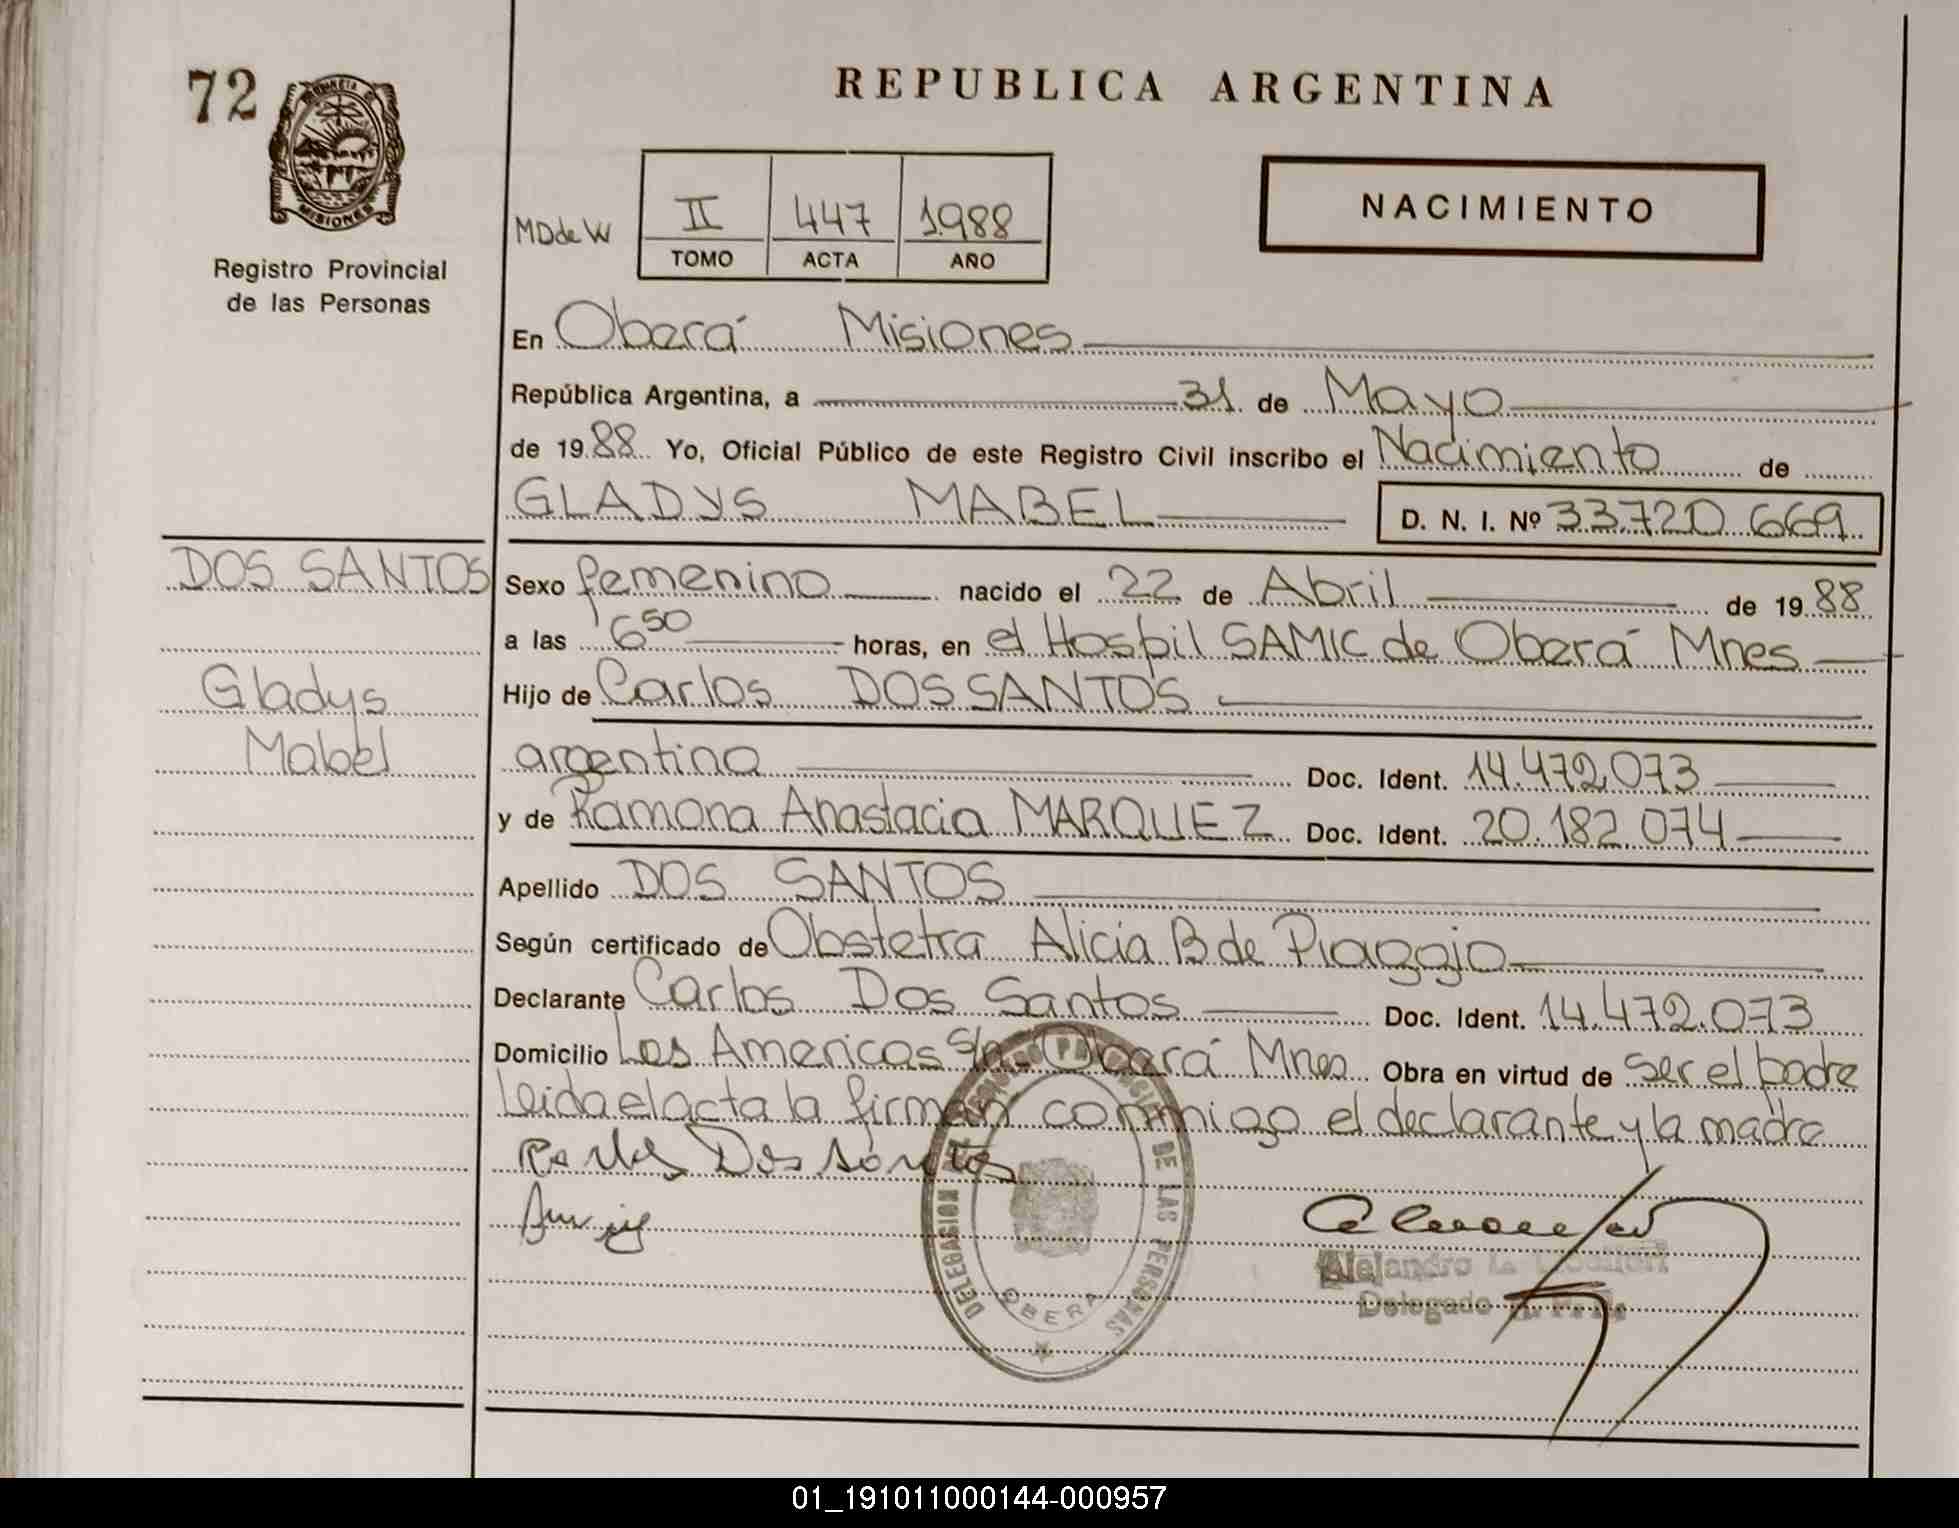 72
PROVINCIA DE
MISIONES
Registro Provincial
de las Personas
REPUBLICA ARGENTINA
NACIMIENTO
MDdeW
II 447 1988
TOMO ACTA AÑO
En Oberá Misiones
República Argentina, a 31 de Mayo
de 1988 Yo, Oficial Público de este Registro Civil inscribo el Nacimiento de
GLADYS MABEL D. N. I. Nº 33.720.669
DOS SANTOS
Gladys
Mabel
Sexo femenino nacido el 22 de Abril de 1988
a las 6 50 horas, en el Hospil SAMIC de Oberá Mnes
Hijo de Carlos DOS SANTOS
argentina Doc. Ident. 14.472.073
y de Ramona Anastacia MARQUEZ Doc. Ident. 20.182.074
Apellido DOS SANTOS
Según certificado de Obstetra Alicia B de Piaggio
Declarante Carlos Dos Santos Doc. Ident. 14.472.073
Domicilio Las Americas s/n Oberá Mnes Obra en virtud de ser el padre
Leida el acta la firman conmigo el declarante y la madre
Dos santos
DELEGACION DEL REGISTRO PROVINCIAL DE LAS PERSONAS
OBERA
Alejandro L.
Delegado
01_191011000144-000957